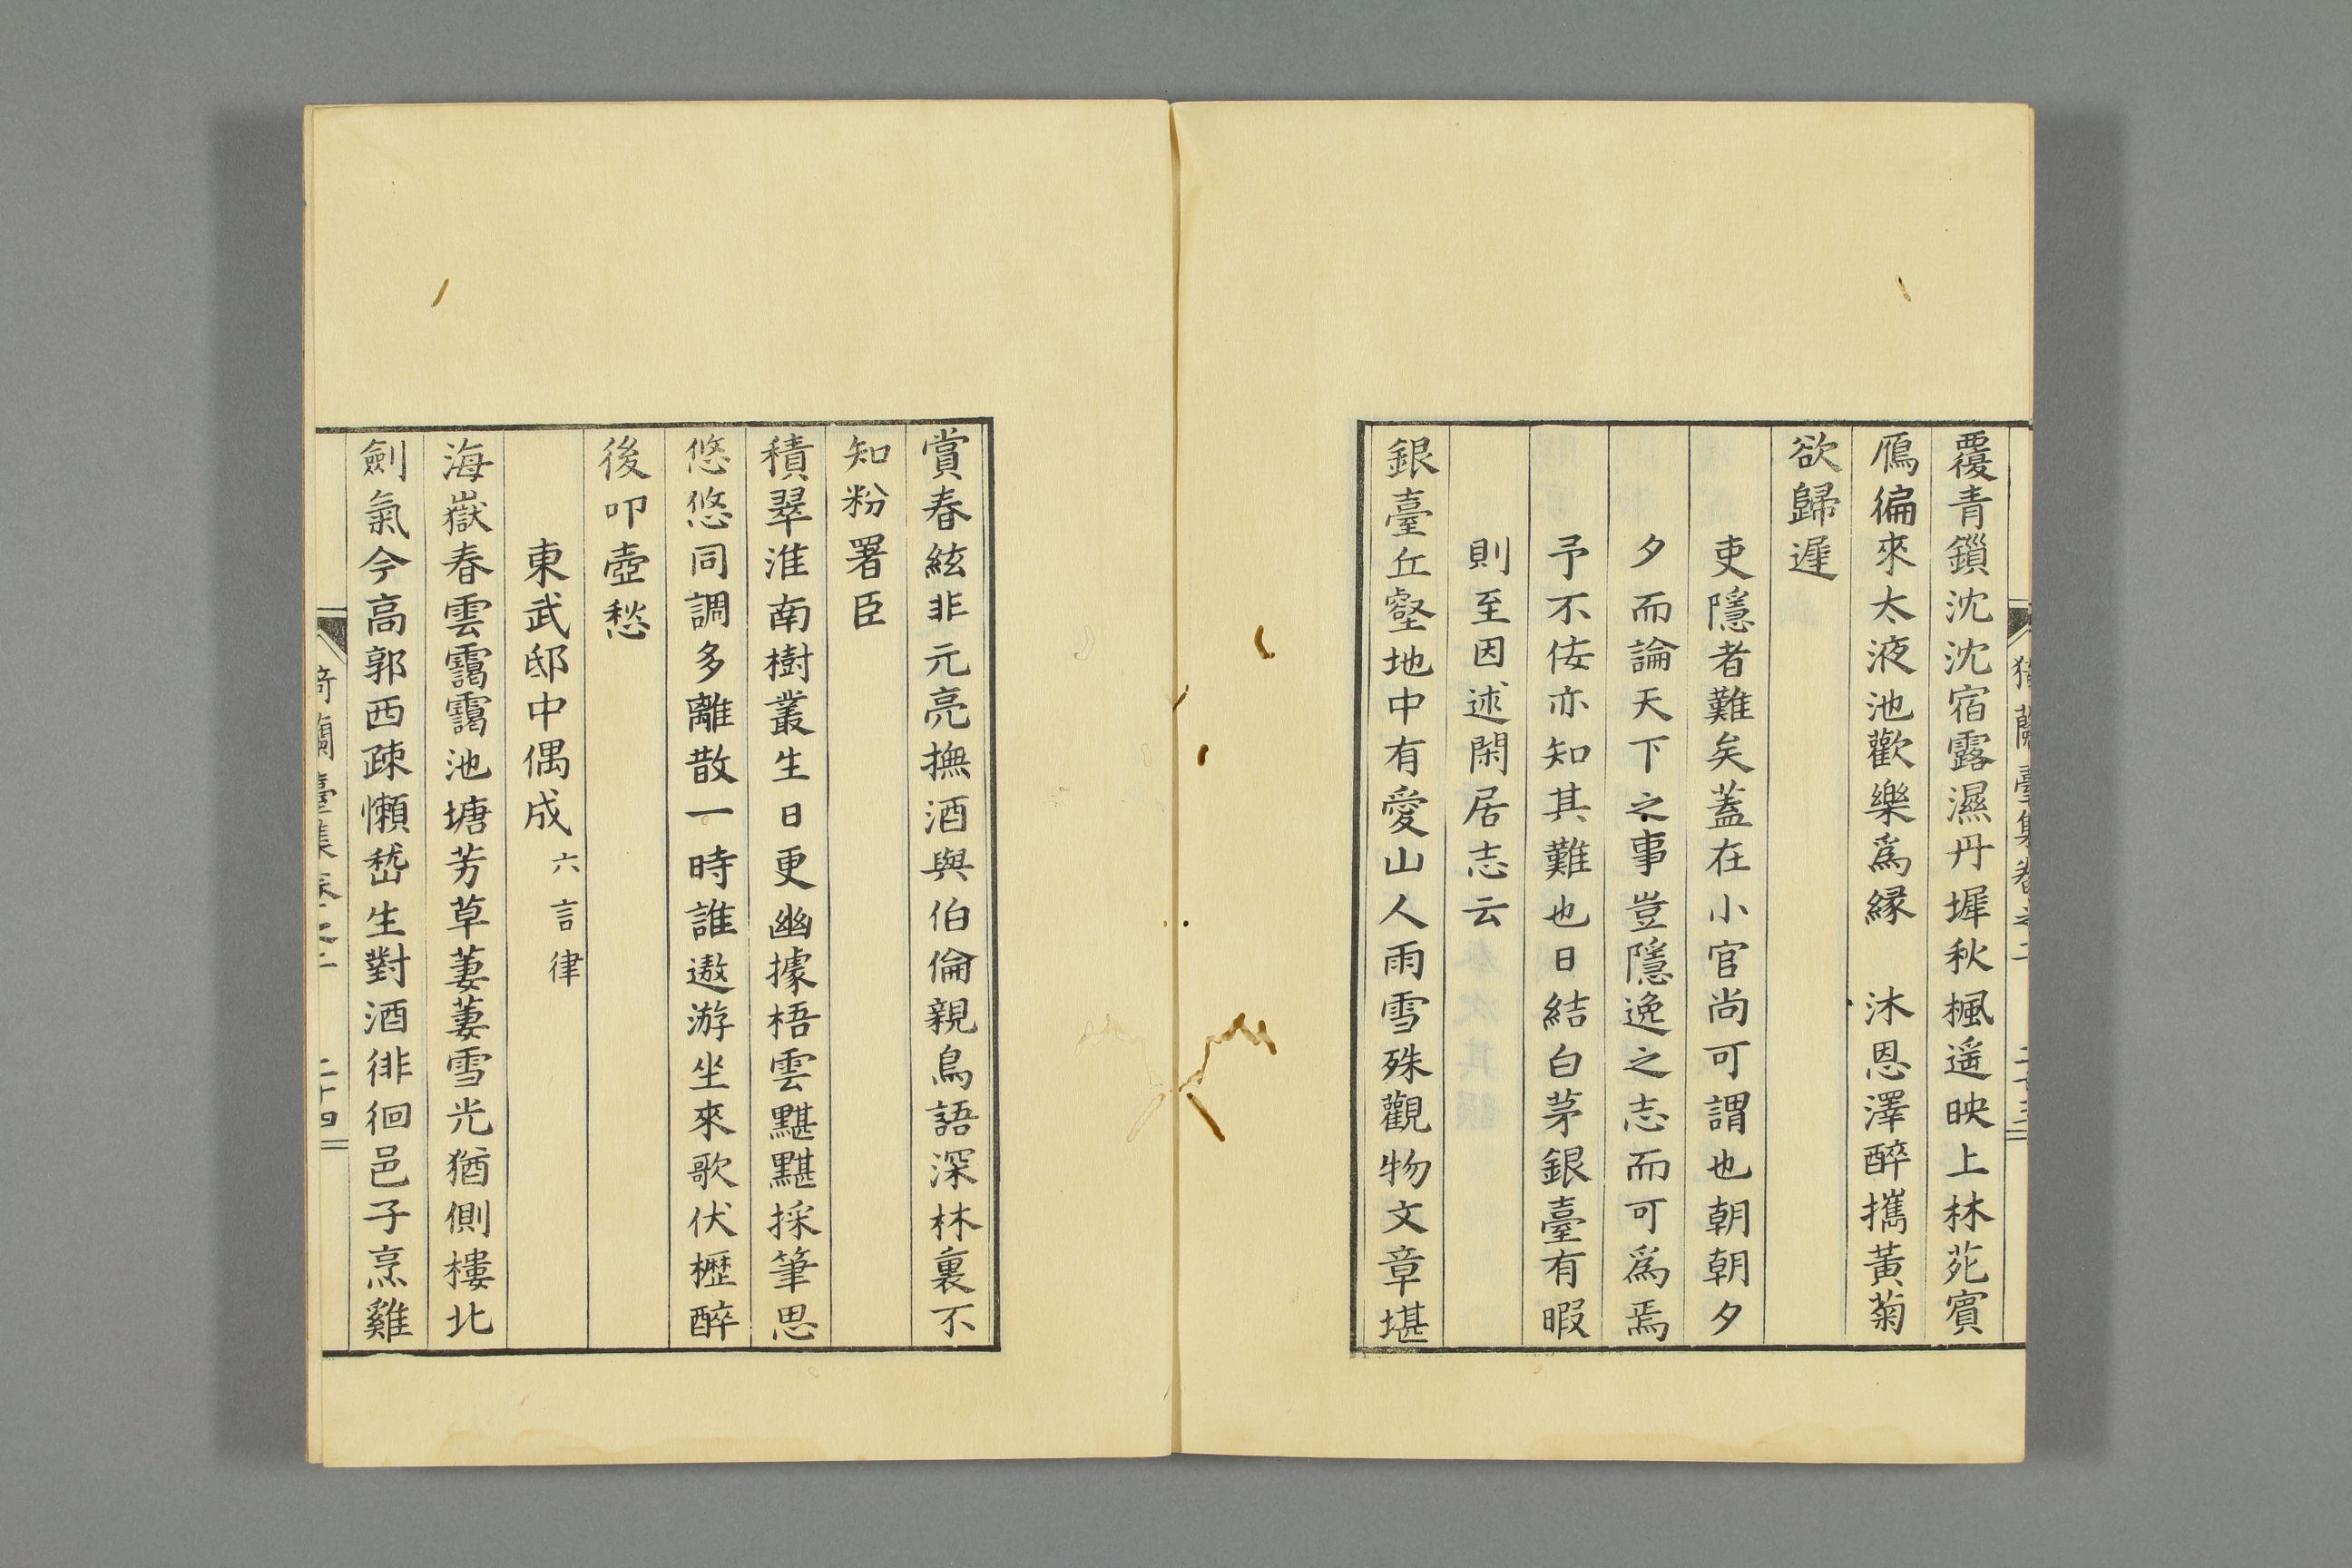 覆青鎖沈沈宿露濕丹墀秋楓遥映上林苑賓
鴈偏來太液池歡樂爲縁　沐恩澤醉攜黃菊
欲歸遲
吏隱者難矣蓋在小官尚可謂也朝朝夕
夕而論天下之事豈隱逸之志而可爲焉
予不佞亦知其難也日結白茅銀臺有暇
則至因述閑居志云
銀臺丘壑地中有愛山人雨雪殊觀物文章堪
賞春絃非元亮撫酒與伯倫親鳥語深林裏不
知粉署臣
積翠淮南樹叢生日更幽據梧雲黮黮採筆思
悠悠同調多離散一時誰遨游坐來歌伏櫪醉
後叩壺愁
東武邸中偶成六言律
海嶽春雲靄靄池塘芳草萋萋雪光猶側樓北
劍氣今高郭西疎懶嵆生對酒徘徊邑子烹雞
猗蘭臺集卷之二　二十四